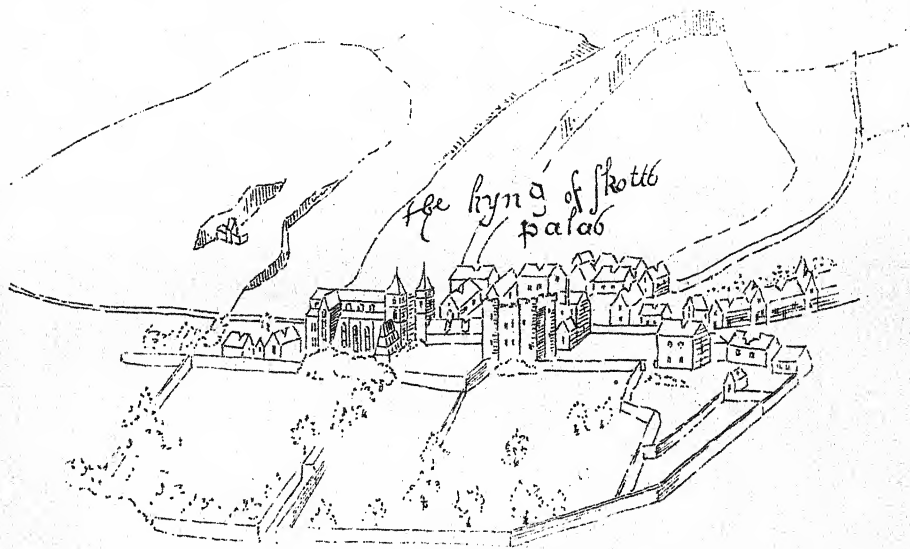 the kyng of skotts
palas